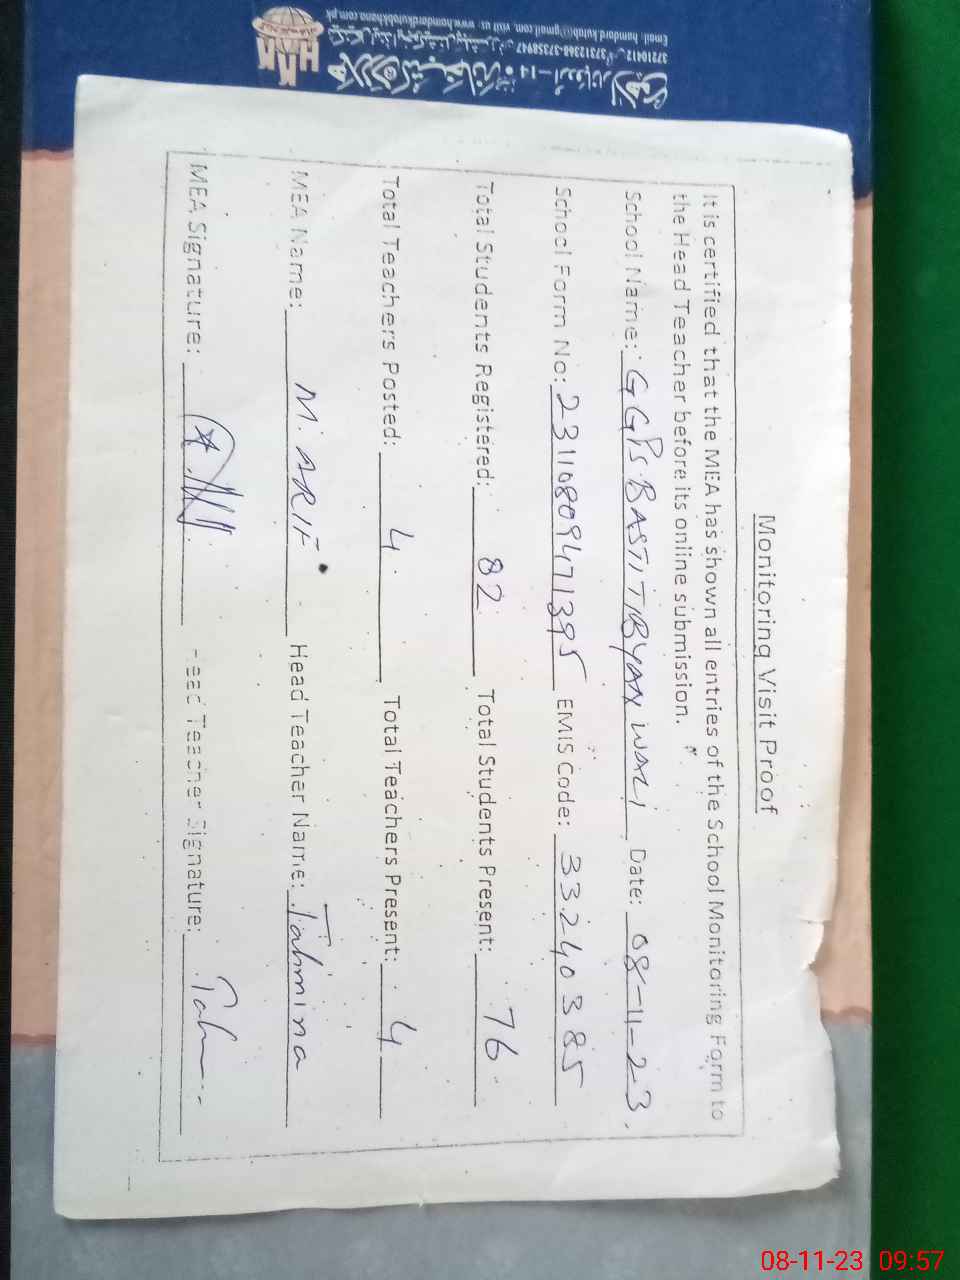 Monitoring Visit Proof
It is certified that the MEA has shown all entries of the School Monitoring Form to
the Head Teacher before its online submission.
School Name: GGPS BASTI TIBYAN WALI Date: 08-11-23.
School Form No: 23110809471395 EMIS Code: 33240385
Total Students Registered: 82 Total Students Present: 76
Total Teachers Posted: 4 Total Teachers Present: 4
MEA Name: M. ARIF Head Teacher Name: Tahmina
MEA Signature: Head Teacher Signature: Tah
HKK
37310412
37312368-37358947
Email: www.hamdardkutabkhana.com.pk
08-11-23 09:57